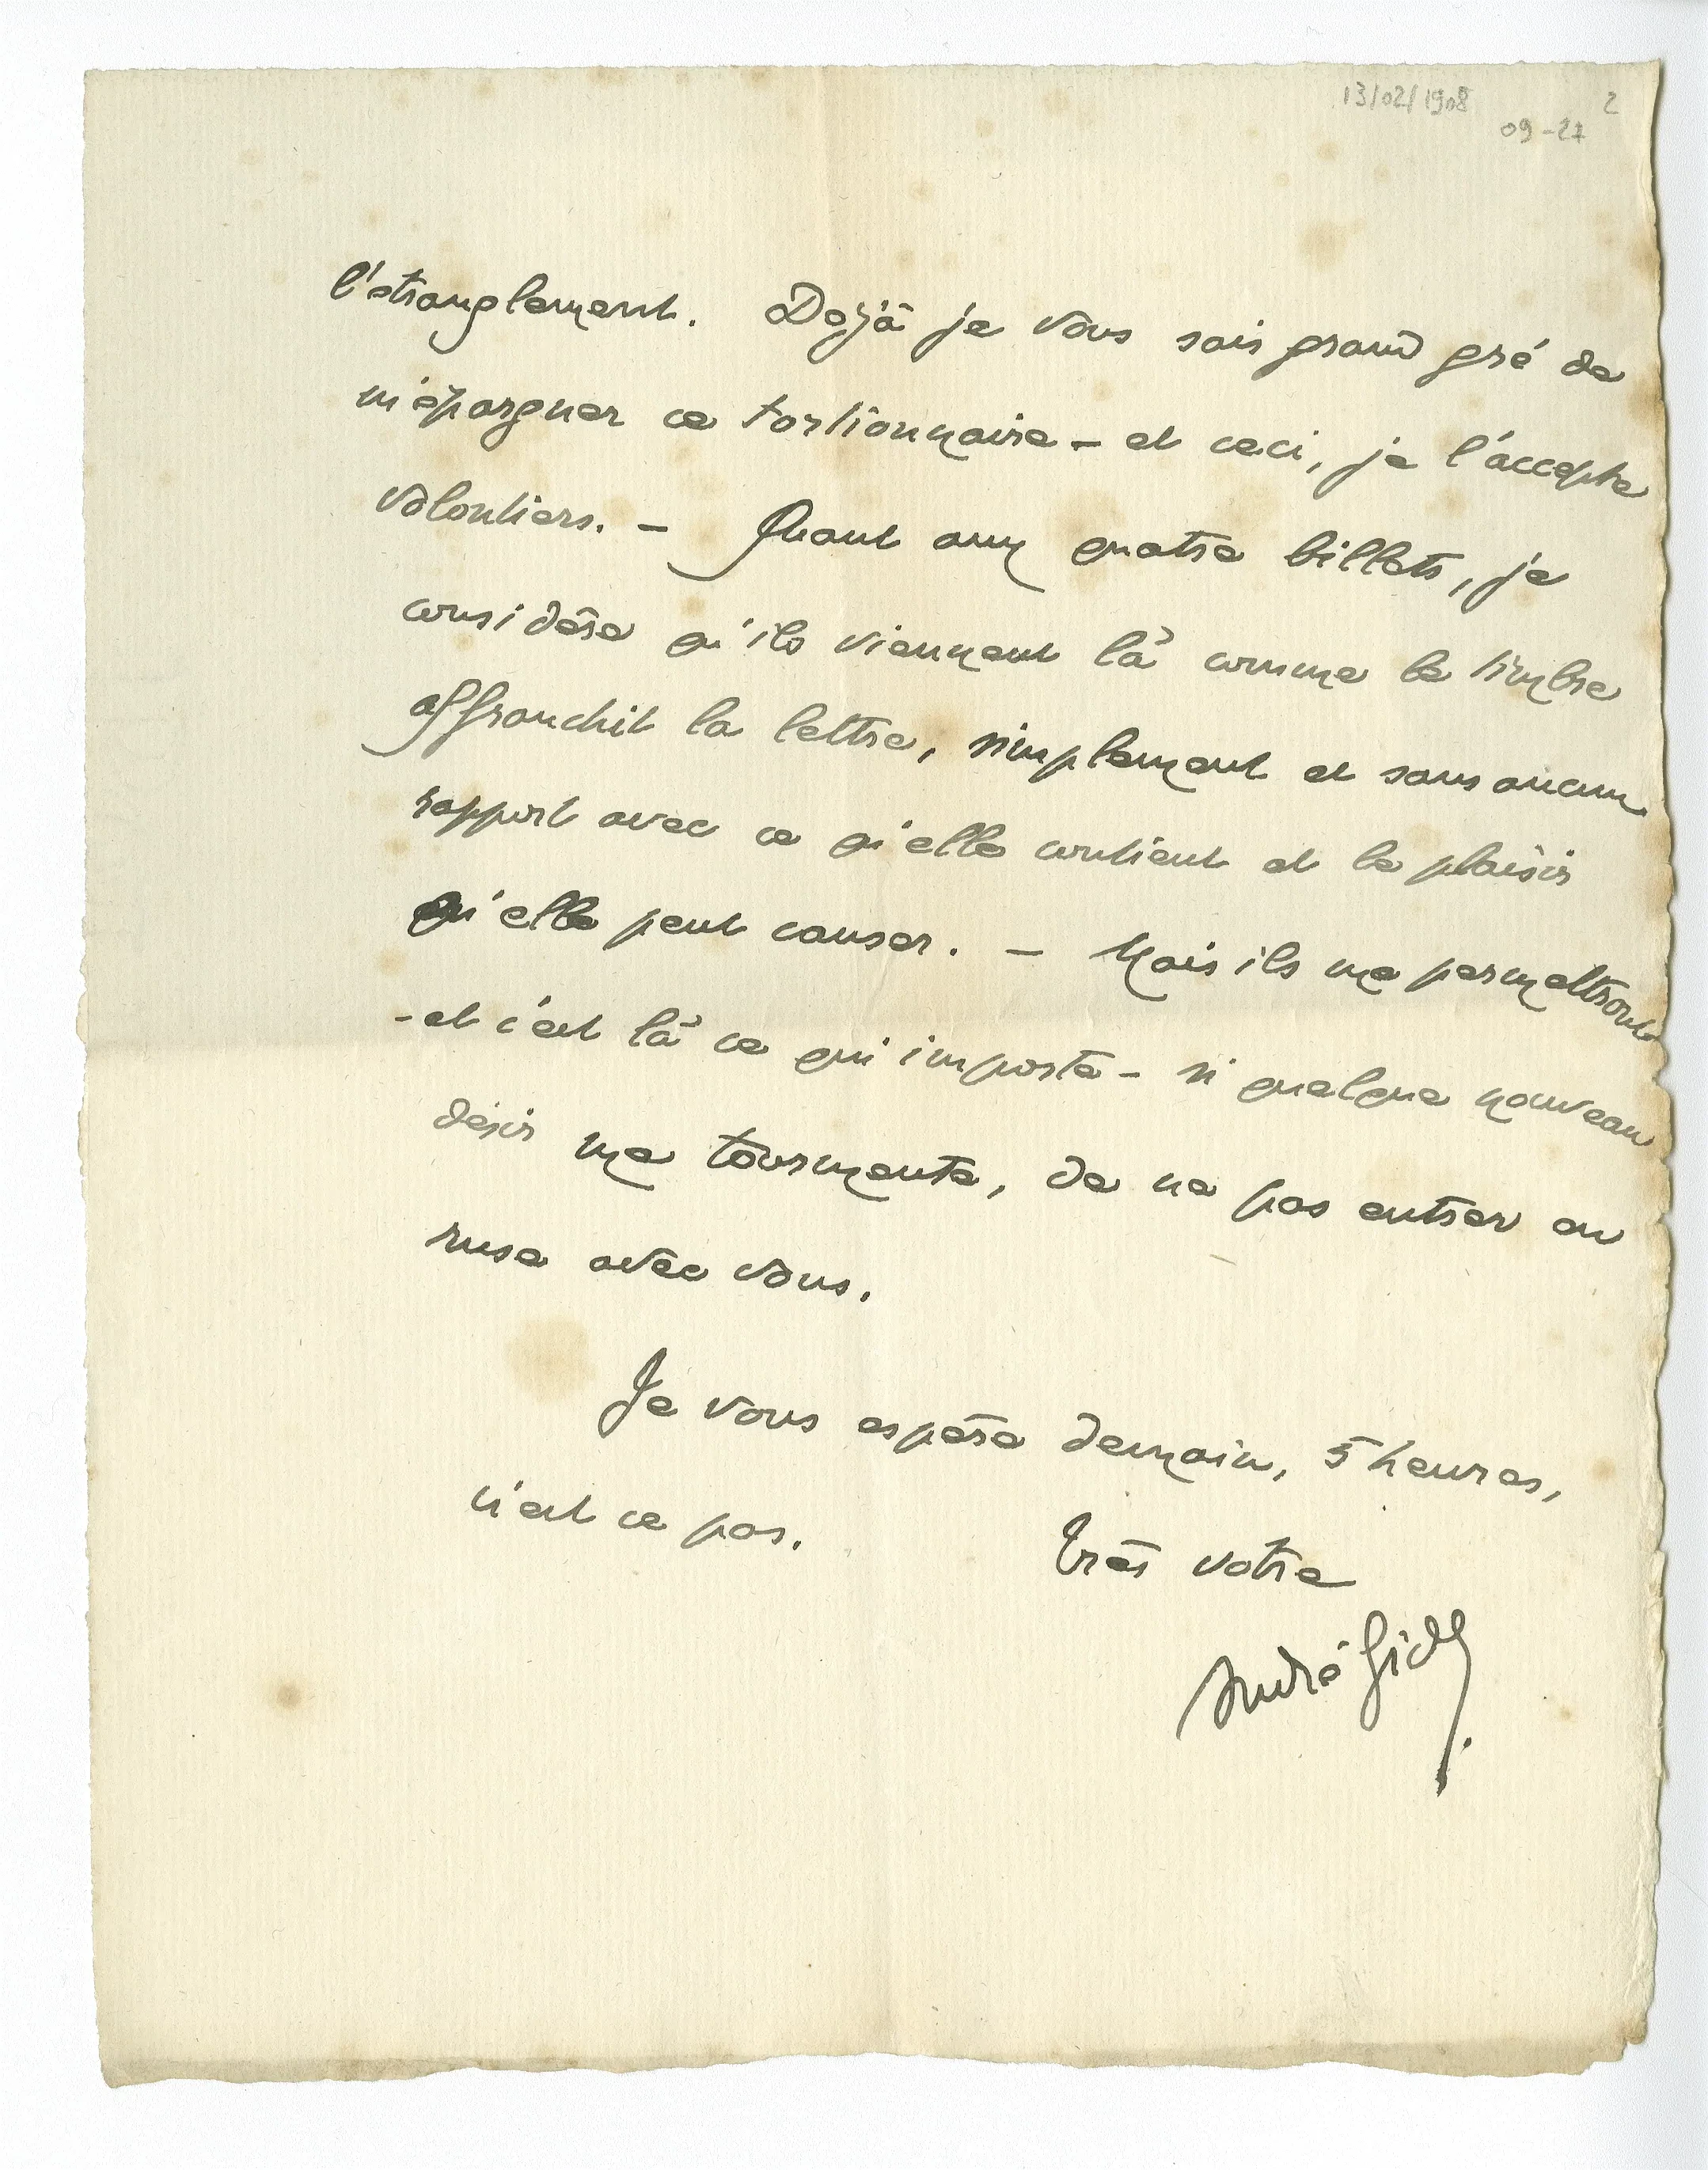 13/02/1908 2
09-27
l'étranglement. Dejà je vous sais grand gré de
m'épargner ce tortionnaire – et ceci, je l'accepte
volontiers. – Quant aux quatre billets, je
considère qu'ils viennent là comme le timbre
affranchit la lettre, simplement et sans aucun
rapport avec ce qu'elle contient et le plaisir
qu'elle peut causer. – Mais ils me permettront
– et c'est là ce qui importe – si quelque nouveau
désir me tourmente, de ne pas entrer en
ruse avec vous.
Je vous espère demain, 5 heures,
n'est ce pas.
Très votre
André Gide.